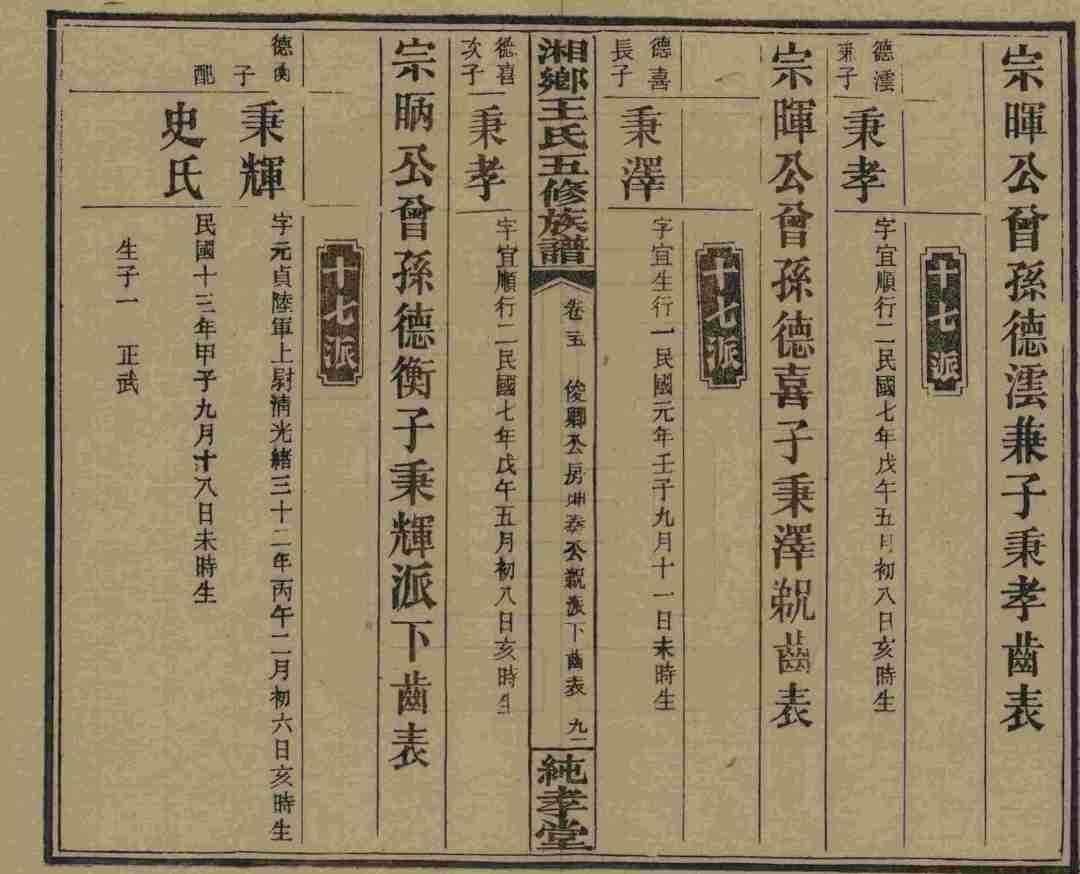 宗暉公曾孫德澐兼子秉孝齒表
十七派
德澐
兼子
秉孝
字宜順行二民國七年戊午五月初八日亥時生
宗暉公曾孫德喜子秉澤覢齒表
十七派
德喜
長子
秉澤
字宜生行一民國元年壬子九月十一日未時生
湘鄉王氏五修族譜
卷五 俊卿公房坤泰公派下齒表 九一
純孝堂
德喜
次子
秉孝
字宜順行二民國七年戊午五月初八日亥時生
宗昞公曾孫德衡子秉輝派下齒表
十七派
德衡
子
秉輝
字元貞陸軍上尉清光緒三十二年丙午二月初六日亥時生
配
史氏
民國十三年甲子九月十八日未時生
生子一 正武